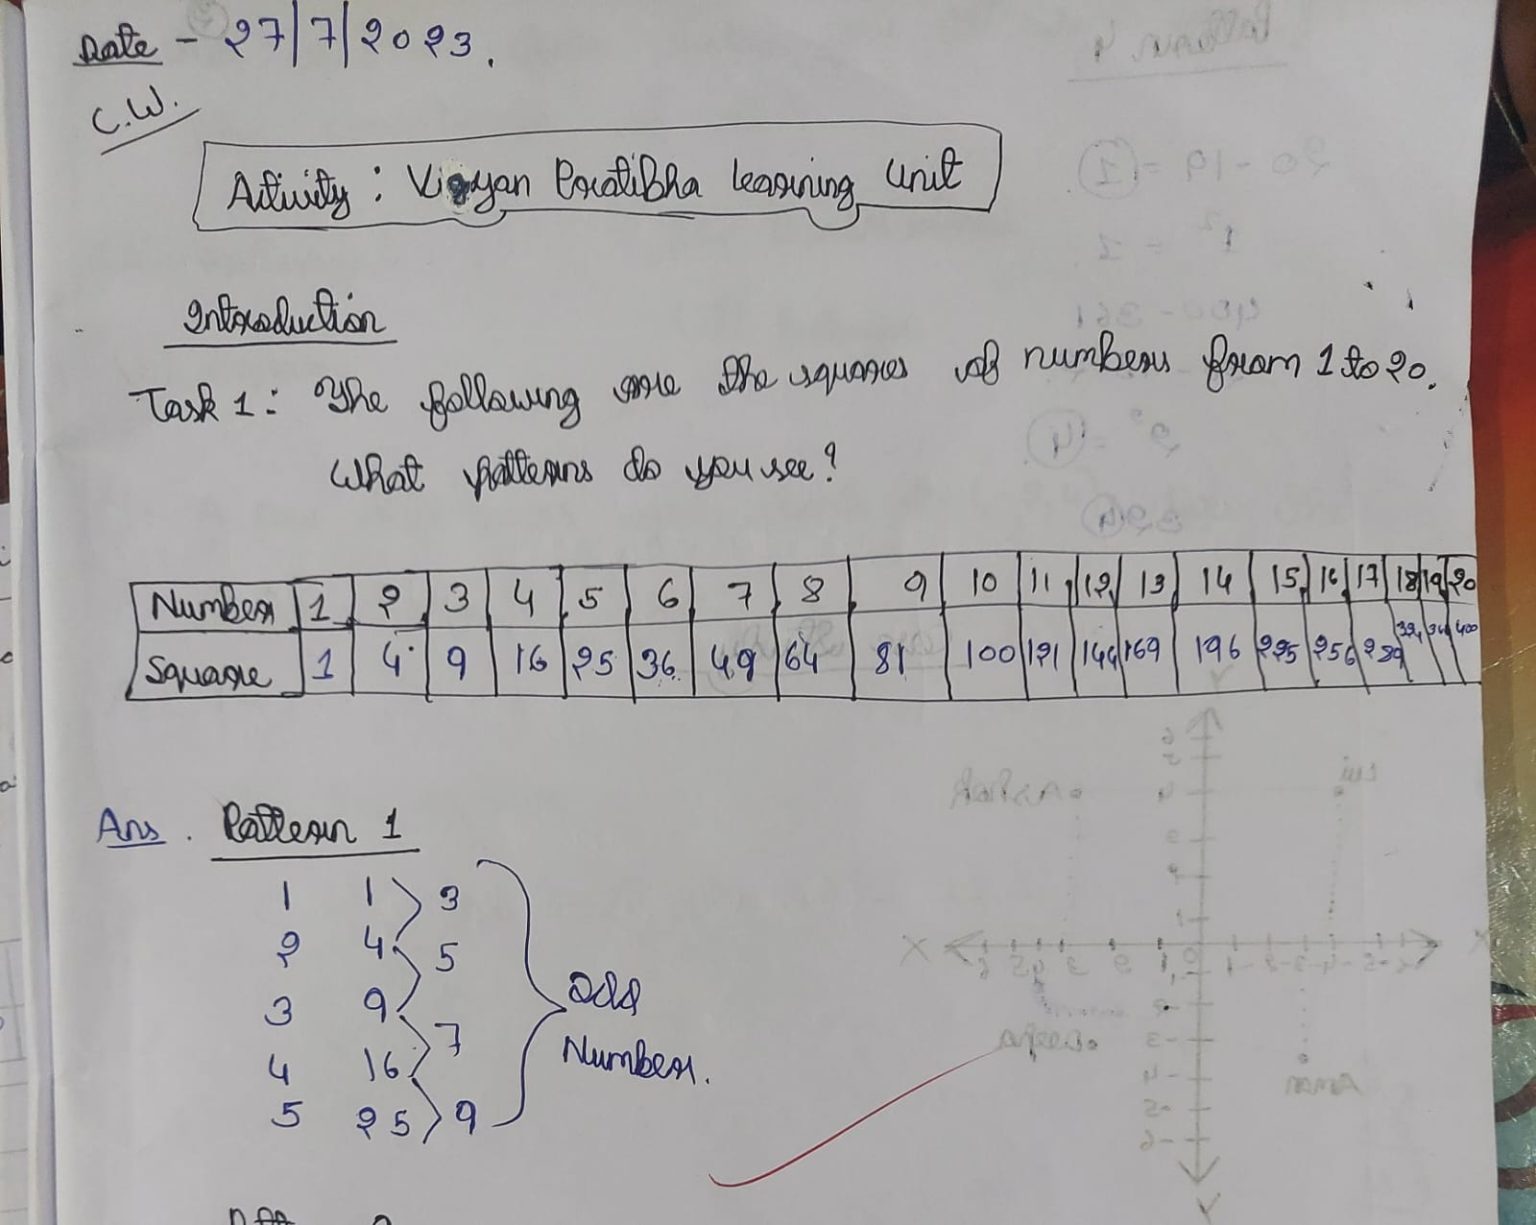 Date - 27/7/2023.
C.W.
Ativity : Vigyan Pratibha learning unit
Introduction
Task 1 : The following are the squares of numbers from 1 to 20.
What patterns do you see?
Number 1 2 3 4 5 6 7 8 9 10 11 12 13 14 15 16 17 18 19 20
Square 1 4 9 16 25 36 49 64 81 100 121 144 169 196 225 256 289 324 361 400
Ans. Pattern 1
1 1 3
2 4 5
3 9 7
4 16 9
5 25
Odd
Number.